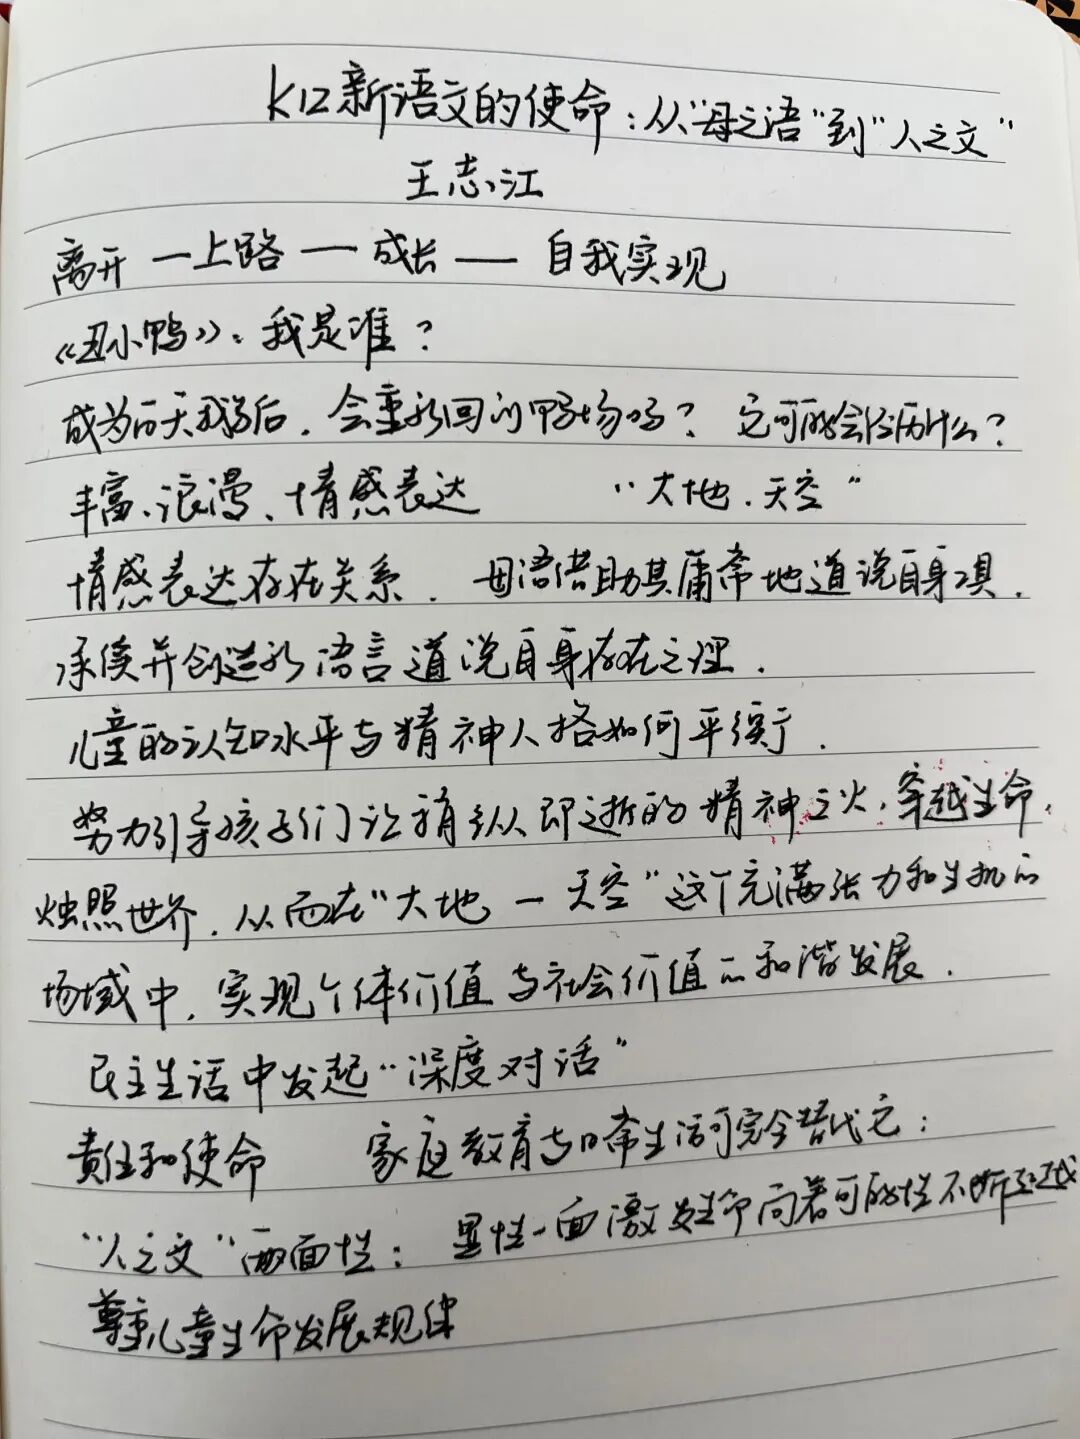 K12新语文的使命:从"母之语"到"人之文"
王志江
离开—上路—成长——自我实现
《丑小鸭》:我是谁?
成为白天鹅后,会重新回到鸭场吗?它可能会经历什么?
丰富、浪漫、情感表达 "大地、天空"
情感表达存在关系. 母语借助其庸常地道说自身
承续并创造新语言道说自身存在之理.
儿童的认知水平与精神人格如何平衡?
努力引导孩子们让稍纵即逝的精神之火,穿越生命,
烛照世界,从而在"大地—天空"这个充满张力和生机的
场域中,实现个体价值与社会价值的和谐发展.
民主生活中发起"深度对话"
责任和使命 家庭教育与日常生活可完全替代它:
"人之文"两面性:显性一面激发生命向着可能性不断
尊重儿童生命发展规律